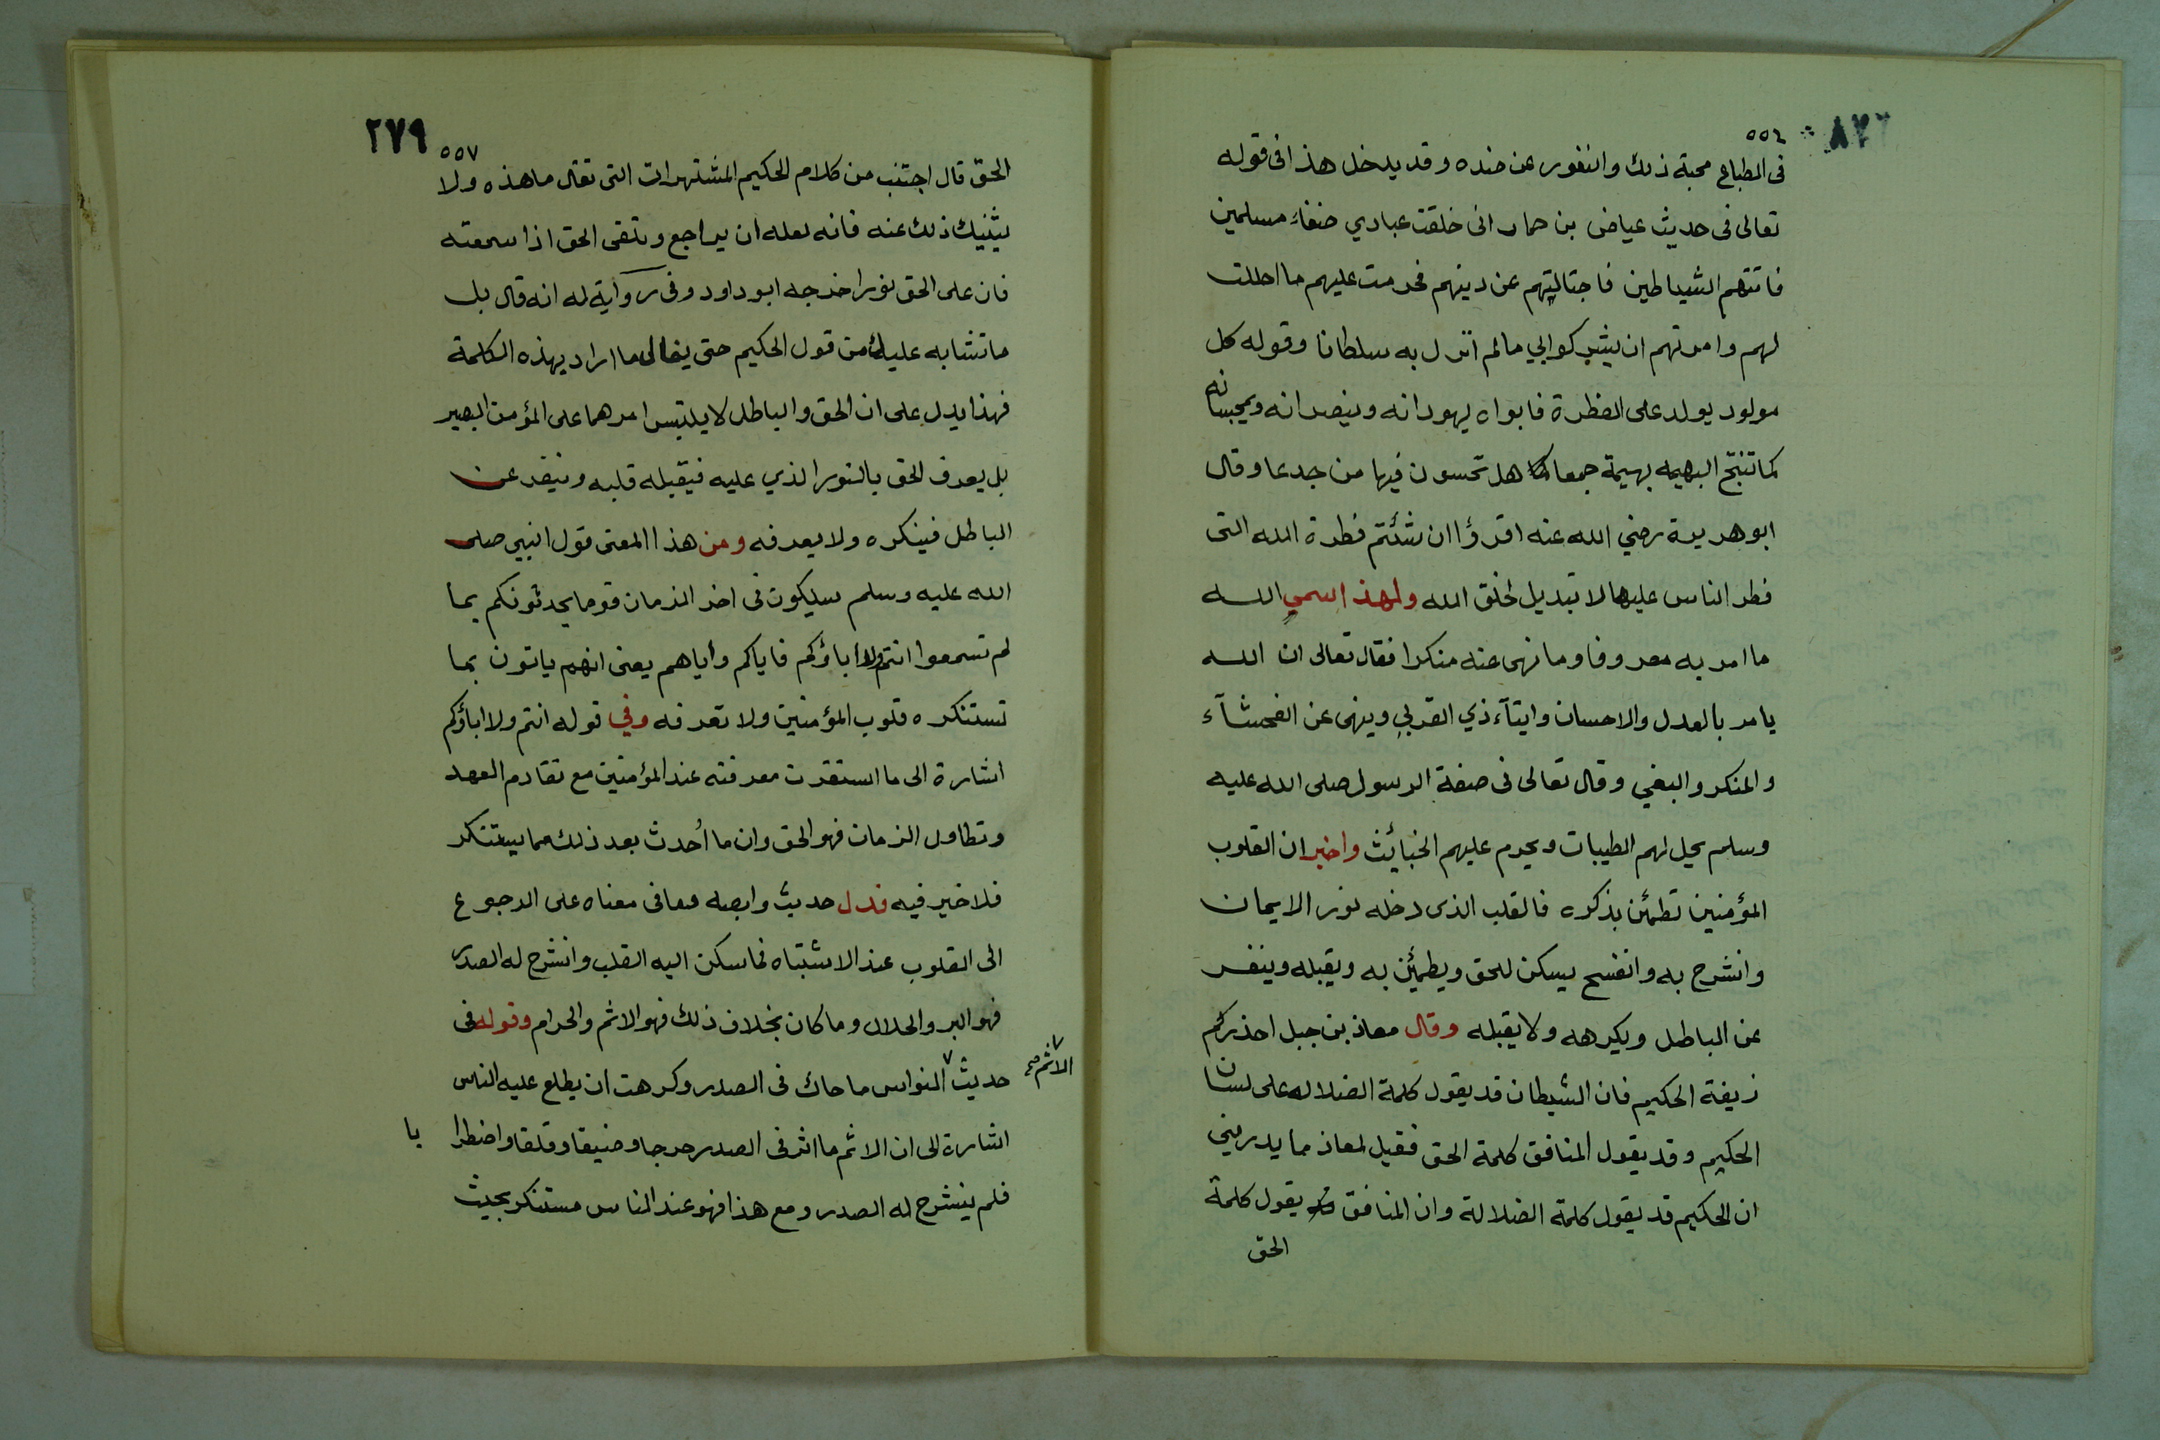 ٥٥٤
فى الطباع محبة ذلك والنفور عن ضده وقد يدخل هذا فى قوله
تعالى فى حديث عياض بن حمار انى خلقت عبادي حنفاء مسلمين
فاتتهم الشياطين فاجتالتهم عن دينهم فحرمت عليهم ما احللت
لهم وامرتهم ان يشركوا بي مالم انزل به سلطانا وقوله كل
مولود يولد على الفطرة فابواه يهودانه وينصرانه ويمجسانه
كما تنتج البهيمه بهيمة جمعا هل تحسون فيها من جدعا وقال
ابو هريرة رضي الله عنه اقرؤا ان شئتم فطرة الله التى
فطر الناس عليها لا تبديل لخلق الله ولهذا سمي الله
ما امر به معروفا وما نهى عنه منكرا فقال تعالى ان الله
يامر بالعدل والاحسان وايتآء ذي القربى وينهى عن الفحشآء
والمنكر والبغي وقال تعالى فى صفة الرسول صلى الله عليه
وسلم يحل لهم الطيبات ويحرم عليهم الخبائث واخبر ان القلوب
المؤمنين تطمئن بذكره فالقلب الذى دخله نور الايمان
وانشرح به وانفسح يسكن للحق ويطمئن به ويقبله وينفر
عن الباطل ويكرهه ولا يقبله وقال معاذ بن جبل احذركم
زيغة الحكيم فان الشيطان قد يقول كلمة الضلاله على لسان
الحكيم وقد يقول المنافق كلمة الحق فقيل لمعاذ ما يدريني
ان الحكيم قد يقول كلمة الضلالة وان المنافق يقول كلمة
الحق
٢٧٩
٥٥٧
الحق قال اجتنب من كلام الحكيم المشتهرات التى تقال ما هذه ولا
يثنيك ذلك عنه فانه لعله ان يراجع وتلقى الحق اذا سمعته
فان على الحق نورا خرجه ابو داود وفى رواية له انه قال بل
ما تشابه عليك من قول الحكيم حتى يقال ما اراد بهذه الكلمة
فهذا يدل على ان الحق والباطل لا يلتبس امرهما على المؤمن البصير
بل يعرف الحق بالنور الذي عليه فيقبله قلبه وينفر عن
الباطل فينكره ولا يعرفه ومن هذا المعنى قول النبي صلى
الله عليه وسلم سيكون فى اخر الزمان قوما يحدثونكم بما
لم تسمعوا انتم ولا اباؤكم فاياكم واياهم يعنى انهم ياتون بما
تستنكره قلوب المؤمنين ولا تعرفه وفي قوله انتم ولا اباؤكم
اشارة الى ما استقرت معرفته عند المؤمنين مع تقادم العهد
وتطاول الزمان فهو الحق وان ما أحدث بعد ذلك مما يستنكر
فلا خير فيه فدل حديث وابصه وما فى معناه على الرجوع
الى القلوب عند الاشتباه فما سكن اليه القلب وانشرح له الصدر
فهو البر والحلال وما كان بخلاف ذلك فهو الاثم والحرام وقوله فى
حديث النواس ما حاك فى الصدر وكرهت ان يطلع عليه الناس
الاثم صح
اشارة الى ان الاثم ما اثر فى الصدر حرجا وضيقا وقلقا واضطرا با
فلم ينشرح له الصدر ومع هذا فهو عند الناس مستنكر بحيث